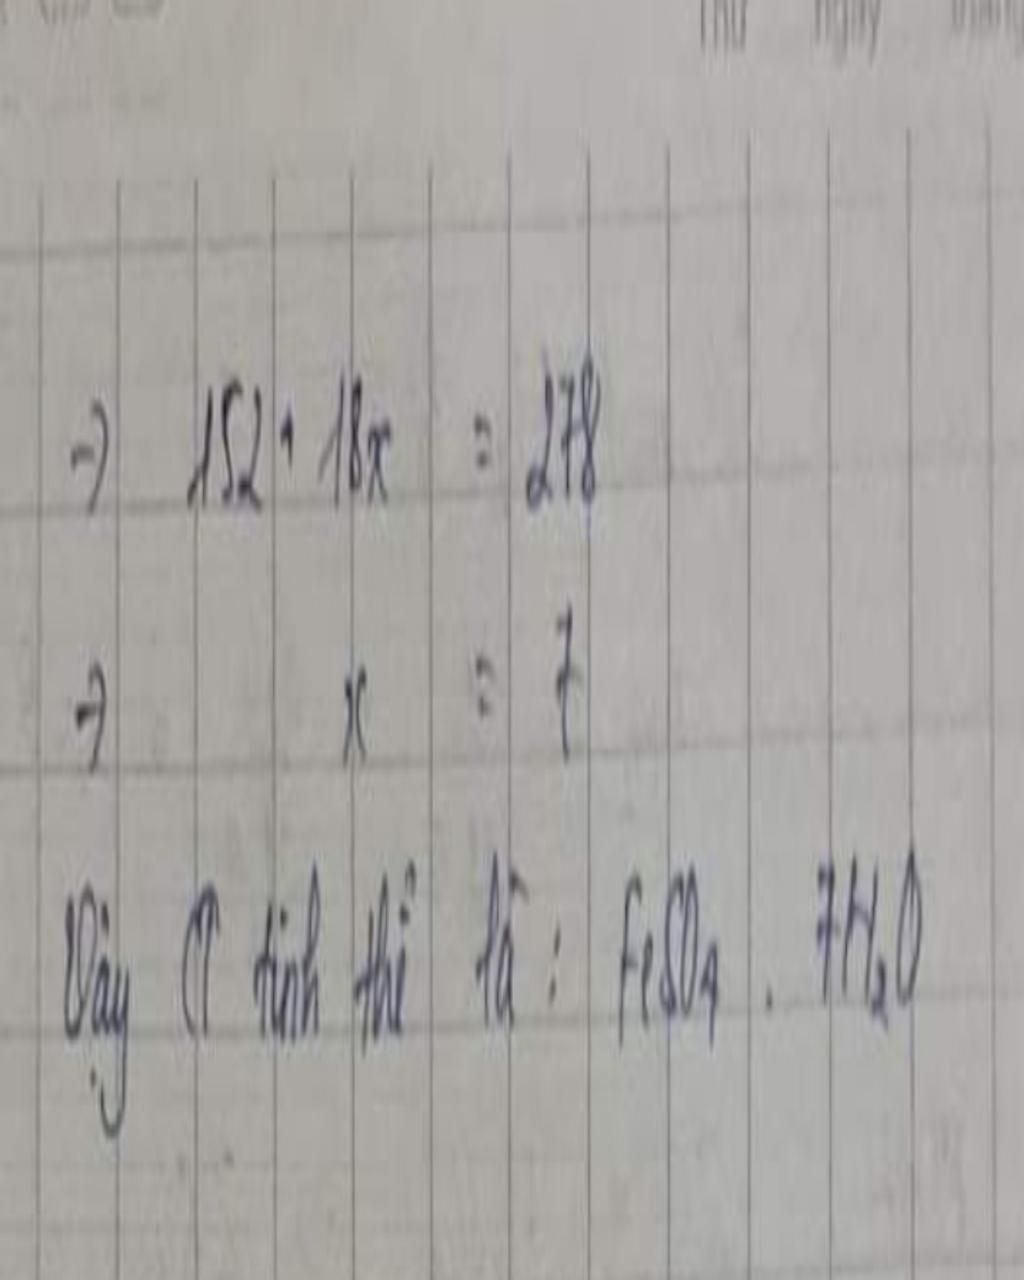 Thứ ngày tháng
→ 152 + 18x = 278
→ x = 7
Vậy CT tinh thể là : FeSO₄ . 7H₂O